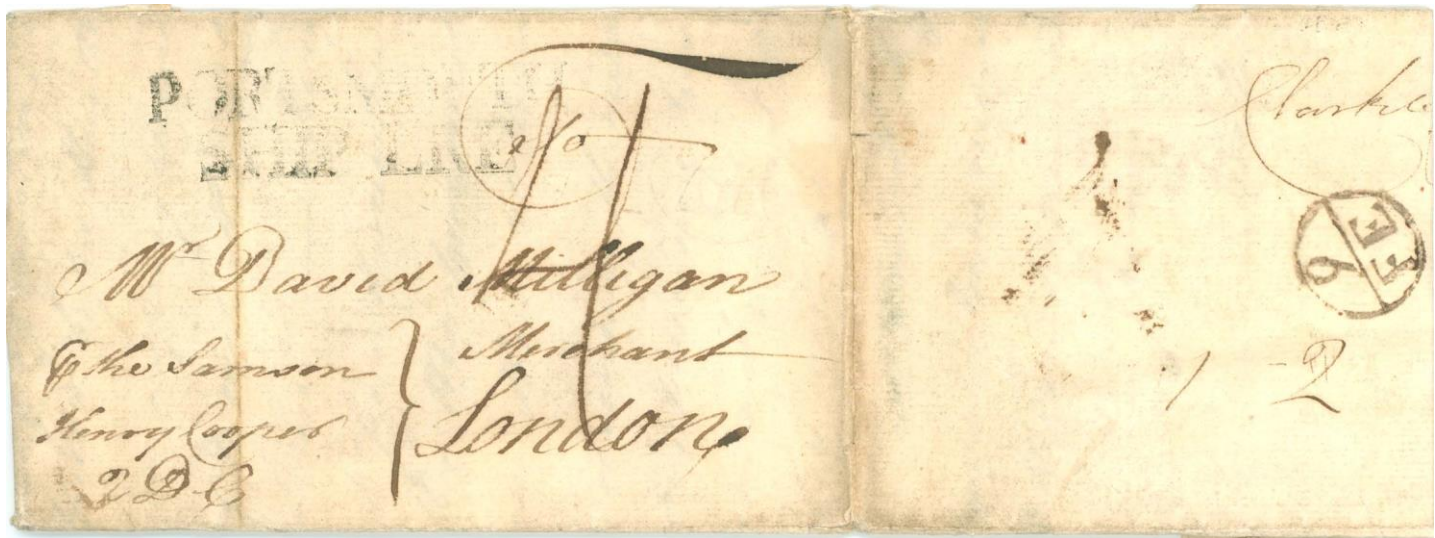 PORTSMOUTH
SHIP LRE
Mr David Milligan
Merchant
London
the Samson
Henry Cooper
2 D C
FE
9
1 - 2